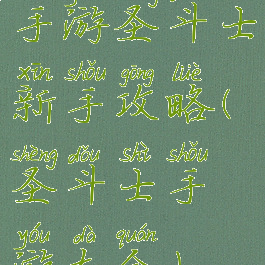 手游圣斗士
xīn shǒu gōng lüè
新手攻略(
shèng dǒu shì shǒu
圣斗士手
yóu dà quán
游大全)